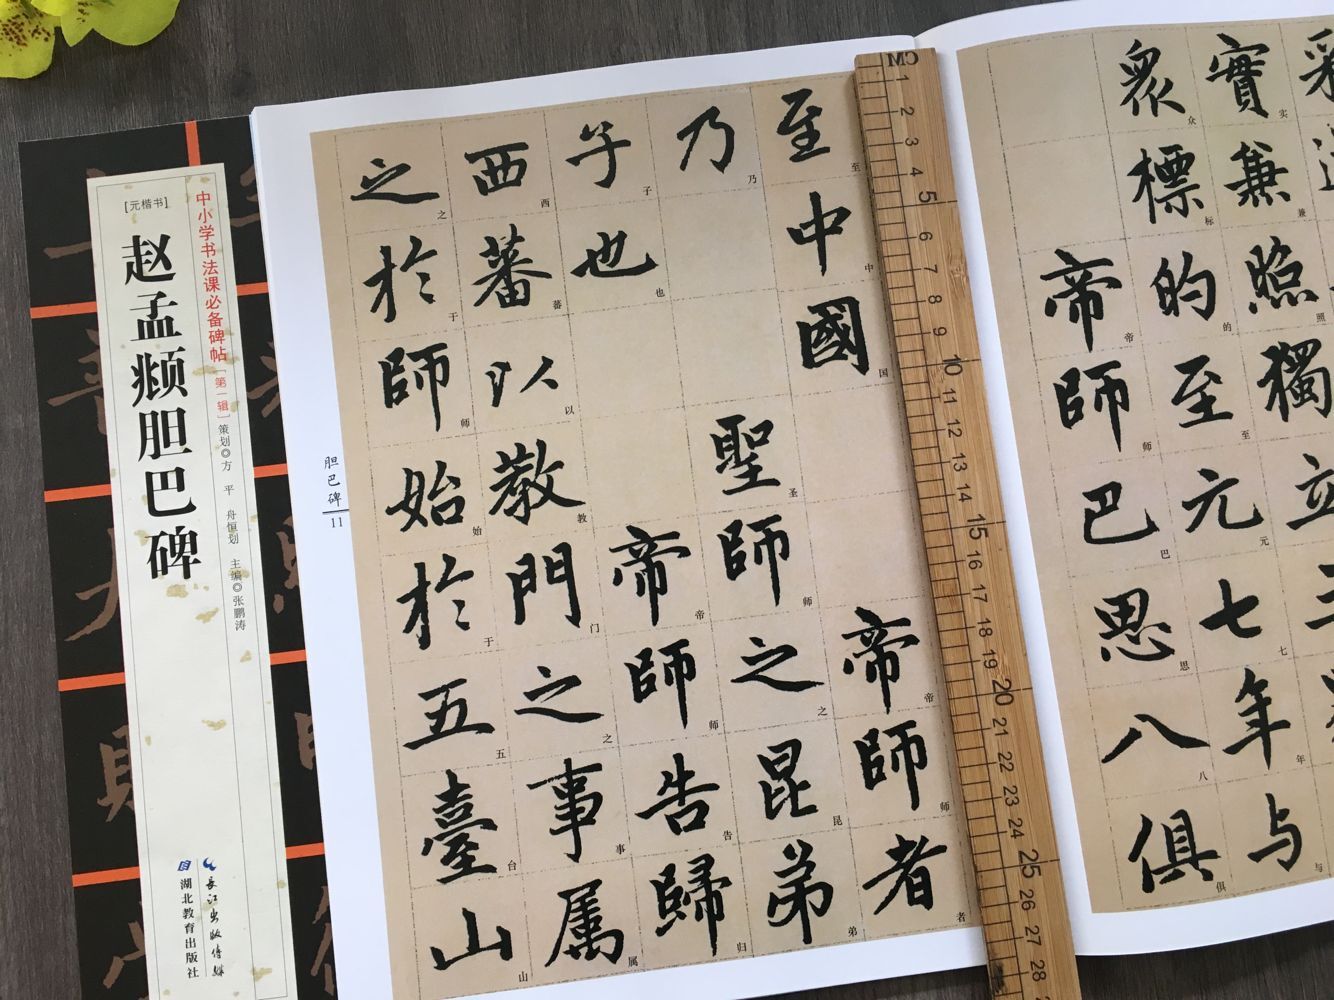 [元楷书]
赵孟𫖯胆巴碑
中小学书法课必备碑帖[第一辑]
策划◎方 平 舟恒划 主编◎张鹏涛
長江出版傳媒
湖北教育出版社
實兼照獨立
实兼照
眾標的至元七年与
众标的至元七年与
帝師巴思八俱
帝师巴思八俱
至中國帝師者
至中国帝师者
乃聖師之昆弟
乃圣师之昆弟
子也帝師告歸
子也帝师告归
西蕃以教門之事属
西蕃以教门之事属
之於師始於五臺山
之于师始于五台山
胆巴碑
11
CM
1
2
3
4
5
6
7
8
9
10
11
12
13
14
15
16
17
18
19
20
21
22
23
24
25
26
27
28